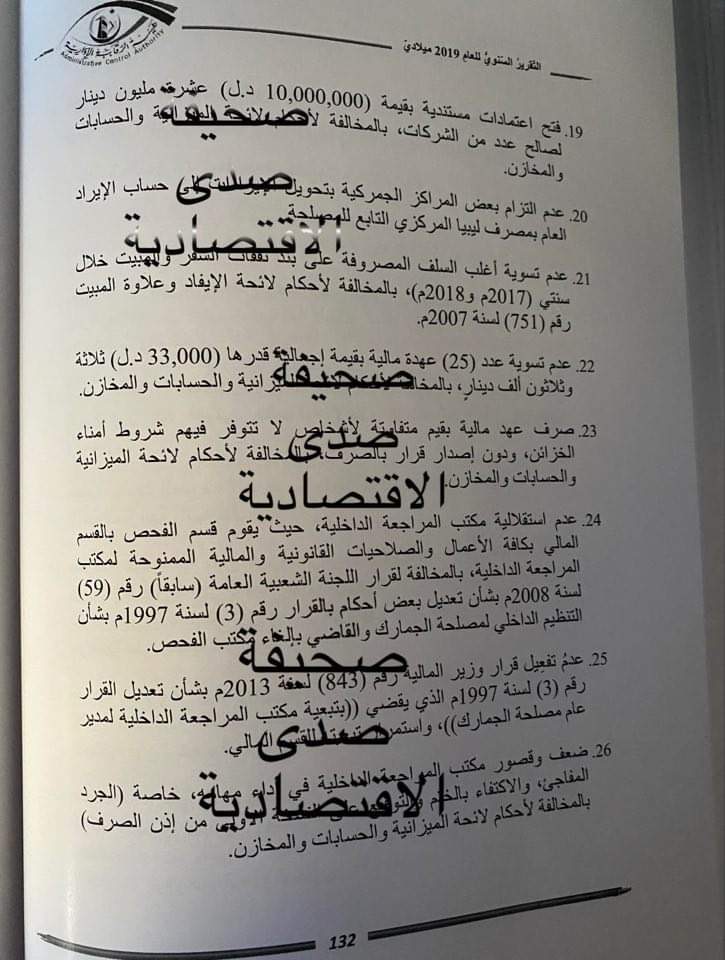 هيئة الرقابة الإدارية
Administrative Control Authority
التقرير السنوي للعام 2019 ميلادي
19. فتح اعتمادات مستندية بقيمة (10,000,000 د.ل) عشرة مليون دينار
لصالح عدد من الشركات، بالمخالفة لأحكام لائحة الميزانية والحسابات
والمخازن.
صحيفة
20. عدم التزام بعض المراكز الجمركية بتحويل الإيرادات إلى حساب الإيراد
العام بمصرف ليبيا المركزي التابع للمصلحة.
صدى
الاقتصادية
21. عدم تسوية أغلب السلف المصروفة على بند نفقات السفر والمبيت خلال
سنتي (2017م و2018م)، بالمخالفة لأحكام لائحة الإيفاد وعلاوة المبيت
رقم (751) لسنة 2007م.
22. عدم تسوية عدد (25) عهدة مالية بقيمة إجمالية قدرها (33,000 د.ل) ثلاثة
وثلاثون ألف دينار، بالمخالفة لأحكام لائحة الميزانية والحسابات والمخازن.
صحيفة
23. صرف عهد مالية بقيم متفاوتة لأشخاص لا تتوفر فيهم شروط أمناء
الخزائن، ودون إصدار قرار بالصرف، بالمخالفة لأحكام لائحة الميزانية
والحسابات والمخازن.
صدى
الاقتصادية
24. عدم استقلالية مكتب المراجعة الداخلية، حيث يقوم قسم الفحص بالقسم
المالي بكافة الأعمال والصلاحيات القانونية والمالية الممنوحة لمكتب
المراجعة الداخلية، بالمخالفة لقرار اللجنة الشعبية العامة (سابقاً) رقم (59)
لسنة 2008م بشأن تعديل بعض أحكام بالقرار رقم (3) لسنة 1997م بشأن
التنظيم الداخلي لمصلحة الجمارك والقاضي بإلغاء مكتب الفحص.
صحيفة
25. عدمُ تفعيل قرار وزير المالية رقم (843) لسنة 2013م بشأن تعديل القرار
رقم (3) لسنة 1997م الذي يقضي ((بتبعية مكتب المراجعة الداخلية لمدير
عام مصلحة الجمارك))، واستمرار تبعيته للقسم المالي.
صدى
الاقتصادية
26. ضعف وقصور مكتب المراجعة الداخلية في أداء مهامه، خاصة (الجرد
المفاجئ، والاكتفاء بالختم والتوقيع على النسخة الأولى من إذن الصرف)
بالمخالفة لأحكام لائحة الميزانية والحسابات والمخازن.
132